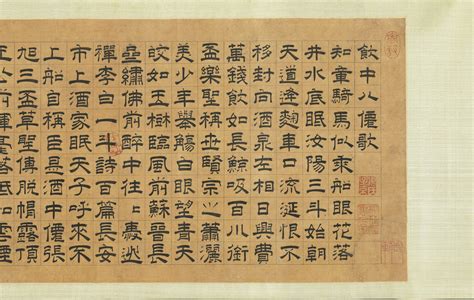 飲中八僊歌
知章騎馬似乘船眼花落
井水底眠汝陽三斗始朝
天道逢麴車口流涎恨不
移封向酒泉左相日興費
萬錢飲如長鯨吸百川銜
盃樂聖稱世賢宗之蕭灑
美少年舉觴白眼望青天
皎如玉樹臨風前蘇晉長
齋繡佛前醉中往往愛逃
禪李白一斗詩百篇長安
市上酒家眠天子呼來不
上船自稱臣是酒中僊張
旭三盃草聖傳脫帽露頂
王公前揮毫落紙如雲煙